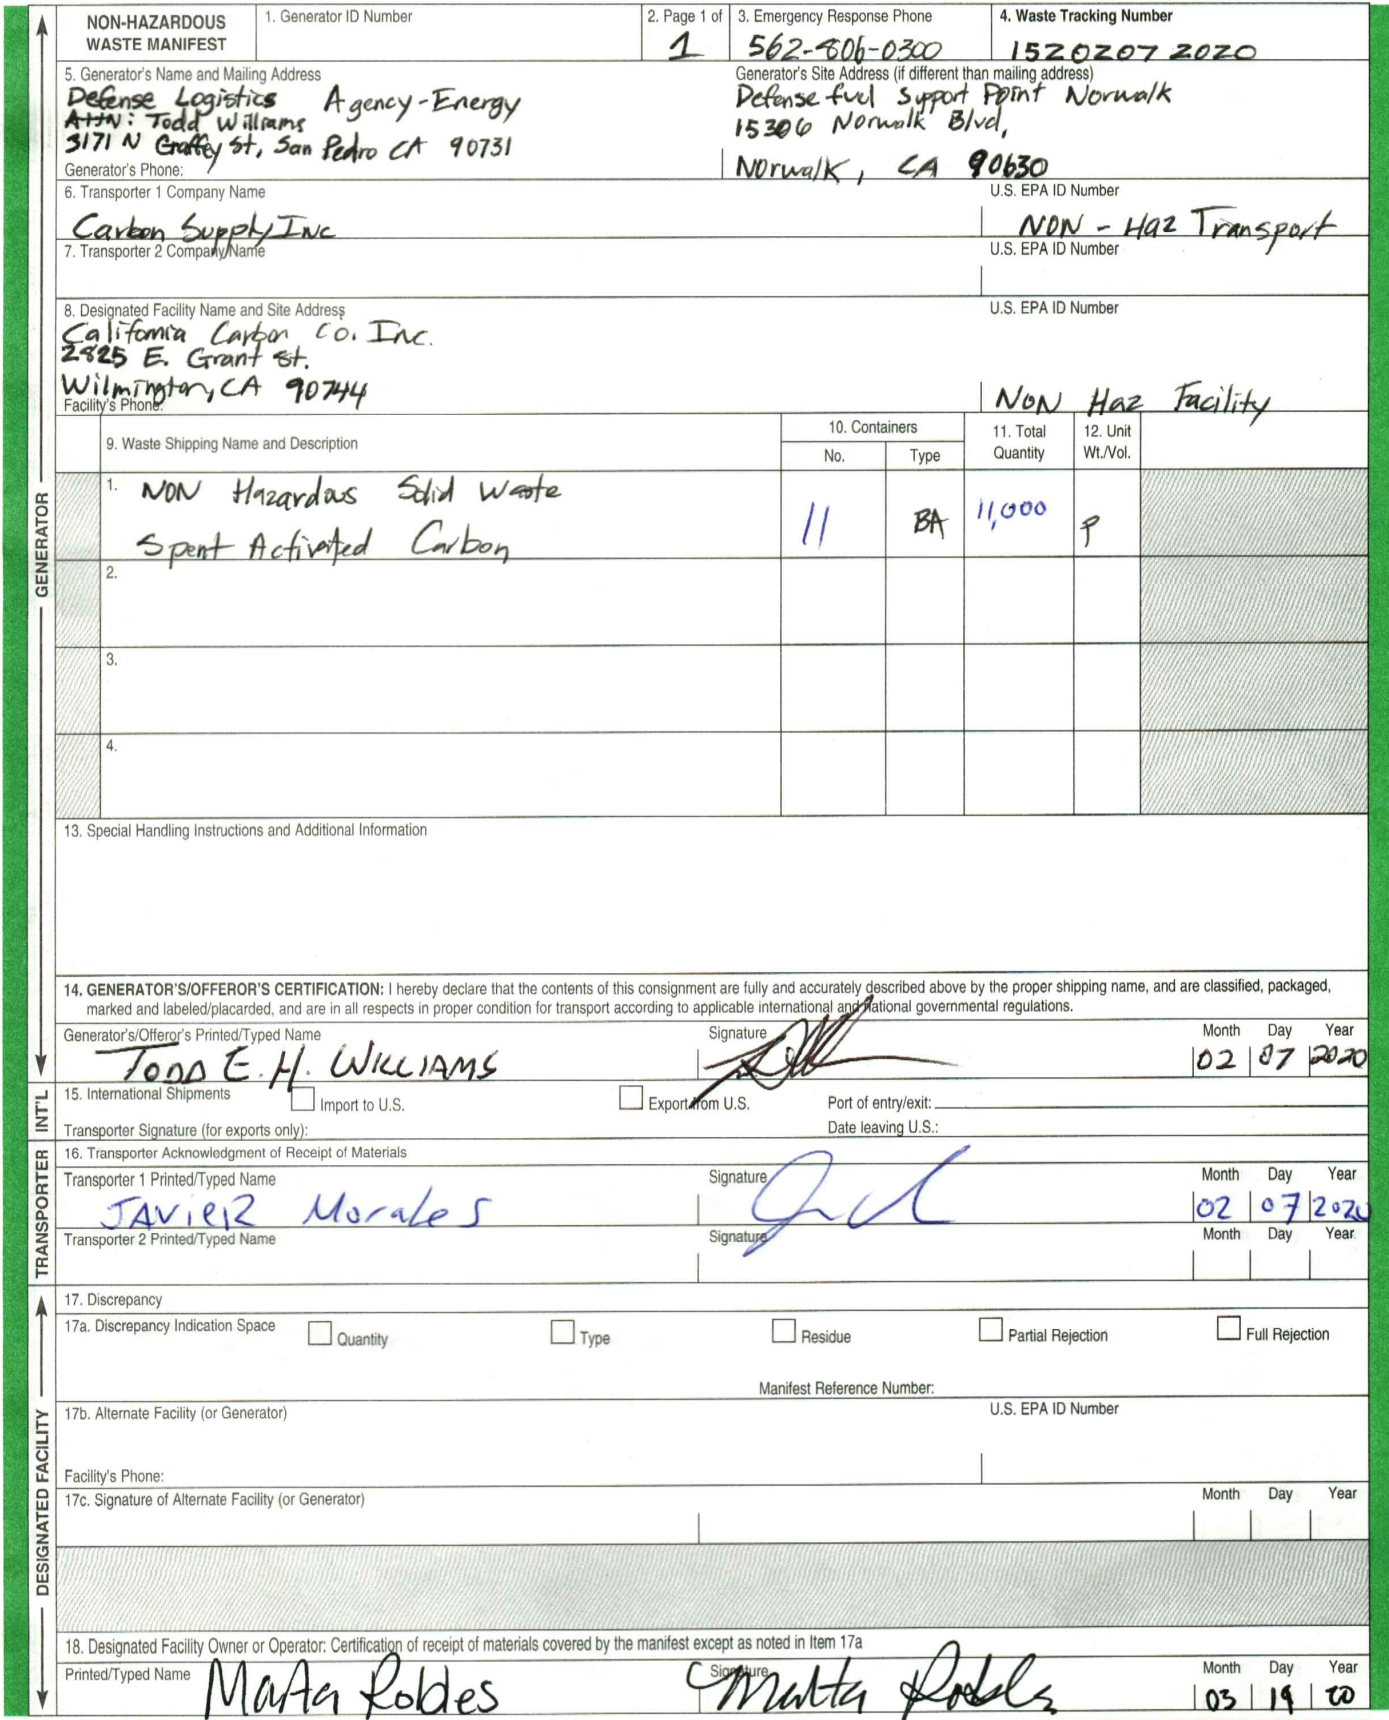 NON-HAZARDOUS WASTE MANIFEST
1. Generator ID Number
2. Page 1 of
1
3. Emergency Response Phone
562-806-0300
4. Waste Tracking Number
1520207 2020
5. Generator's Name and Mailing Address
Defense Logistics Agency-Energy
Attn: Todd Williams
3171 N Gaffey St, San Pedro CA 90731
Generator's Phone:
Generator's Site Address (if different than mailing address)
Defense fuel Support Point Norwalk
15306 Norwalk Blvd,
Norwalk, CA 90630
6. Transporter 1 Company Name
Carbon Supply Inc
U.S. EPA ID Number
NON - Haz Transport
7. Transporter 2 Company Name
U.S. EPA ID Number
8. Designated Facility Name and Site Address
California Carbon Co. Inc.
2825 E. Grant St.
Wilmington, CA 90744
Facility's Phone:
U.S. EPA ID Number
NON Haz Facility
9. Waste Shipping Name and Description
10. Containers
No.
Type
11. Total Quantity
12. Unit Wt./Vol.
1. NON Hazardous Solid Waste
Spent Activated Carbon
11
BA
11,000
P
2.
3.
4.
13. Special Handling Instructions and Additional Information
14. GENERATOR'S/OFFEROR'S CERTIFICATION: I hereby declare that the contents of this consignment are fully and accurately described above by the proper shipping name, and are classified, packaged,
marked and labeled/placarded, and are in all respects in proper condition for transport according to applicable international and national governmental regulations.
Generator's/Offeror's Printed/Typed Name
TODD E. H. WILLIAMS
Signature
Month Day Year
02 07 2020
15. International Shipments
Import to U.S.
Export from U.S.
Port of entry/exit:
Transporter Signature (for exports only):
Date leaving U.S.:
16. Transporter Acknowledgment of Receipt of Materials
Transporter 1 Printed/Typed Name
JAVIER Morales
Signature
Month Day Year
02 07 2020
Transporter 2 Printed/Typed Name
Signature
Month Day Year
17. Discrepancy
17a. Discrepancy Indication Space
Quantity
Type
Residue
Partial Rejection
Full Rejection
Manifest Reference Number:
17b. Alternate Facility (or Generator)
U.S. EPA ID Number
Facility's Phone:
17c. Signature of Alternate Facility (or Generator)
Month Day Year
18. Designated Facility Owner or Operator: Certification of receipt of materials covered by the manifest except as noted in Item 17a
Printed/Typed Name
Marta Robles
Signature
Marta Robles
Month Day Year
03 19 20
GENERATOR
INT'L
TRANSPORTER
DESIGNATED FACILITY